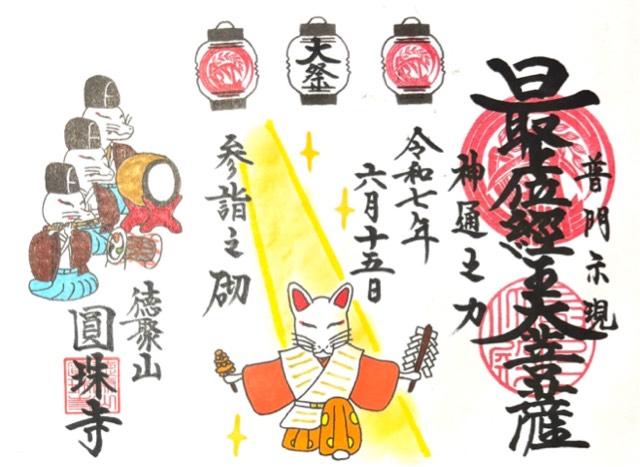 大祭
普門示現
最上位經王大菩薩
神通之力
令和七年
六月十五日
参詣之砌
徳聚山
圓珠寺